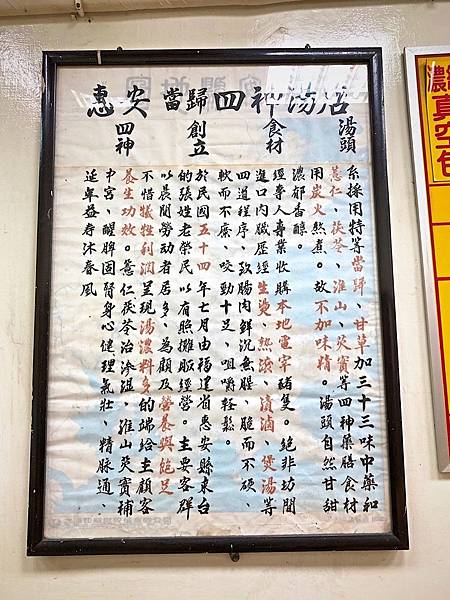 惠安當歸四神湯店
湯頭
系採用特等當歸、甘草加三十三味中藥和
薏仁、茯苓、淮山、芡實等四神藥膳食材
用炭火熬煮。故不加味精。湯頭自然甘甜
濃郁香醇。
食材
經專人專業收購本地電宰豬隻。絕非坊間
進口內臟歷經生燙、熱滾、清滷、煲湯等
四道程序、致腸肉鮮沉無腥、脆而不硬、
軟而不糜、咬勁十足、咀嚼輕鬆。
創立
於民國五十四年七月由福建省惠安縣東台
的張姓老榮民以有照攤販經營。主要客群
以晨間勞動者居多、為顧及營養與飽足
不惜犧牲利潤呈現湯濃料多的端給主顧客
四神
養生功效。薏仁茯苓治滲濕、淮山芡實補
中宮、醒脾固腎身心健理氣壯、精脈通、
延年益壽沐春風
真空包